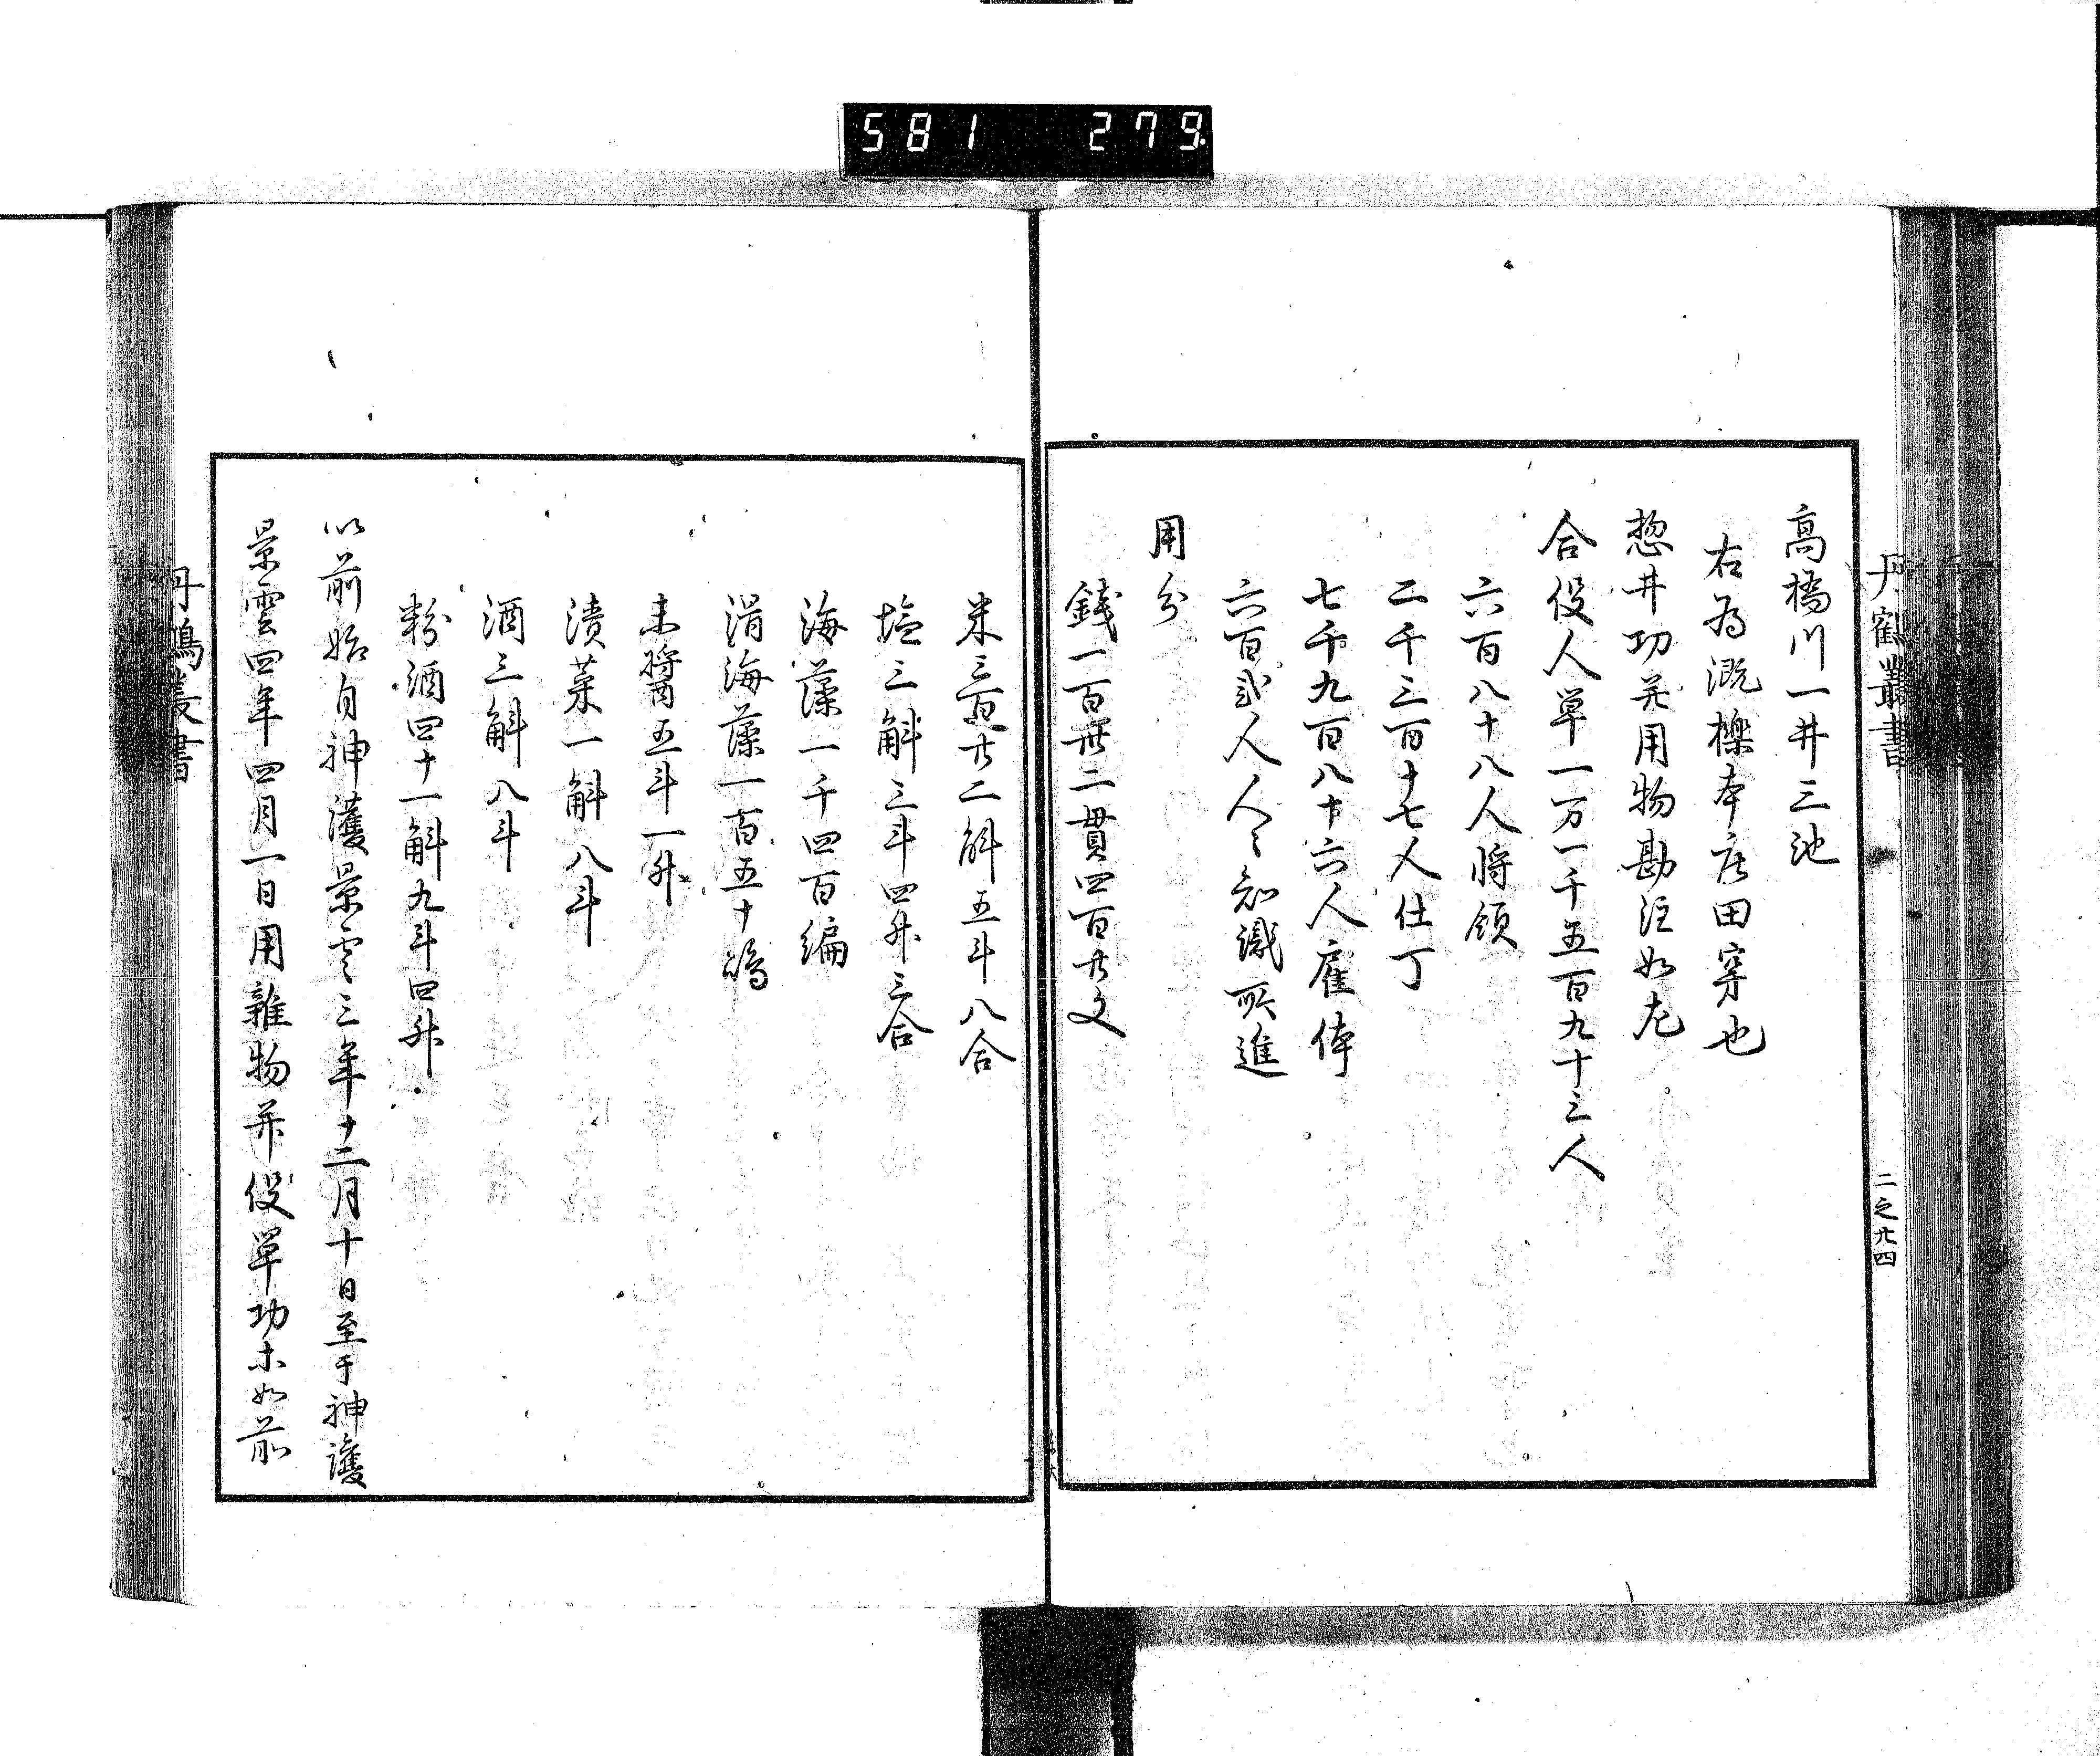 581 279
丹鶴叢書
二之廿四
高橋川一井三池
右為漑櫟本庄田穿也
惣井功并用物勘注如左
合役人單一万一千五百九十三人
六百八十八人將領
二千三百十七人仕丁
七千九百八十六人雇俥
六百弐人人〻知識所進
用分
錢一百卅二貫四百廿文
米三百廿二斛五斗八合
塩三斛三斗四升三合
海藻一千四百編
滑海藻一百五十嶋
未醬五斗一升
漬菜一斛八斗
酒三斛八斗
粉酒四十一斛九斗四升
以前始自神護景雲三年十二月十日至于神護
景雲四年四月一日用雜物并役單功木如前
丹鶴叢書